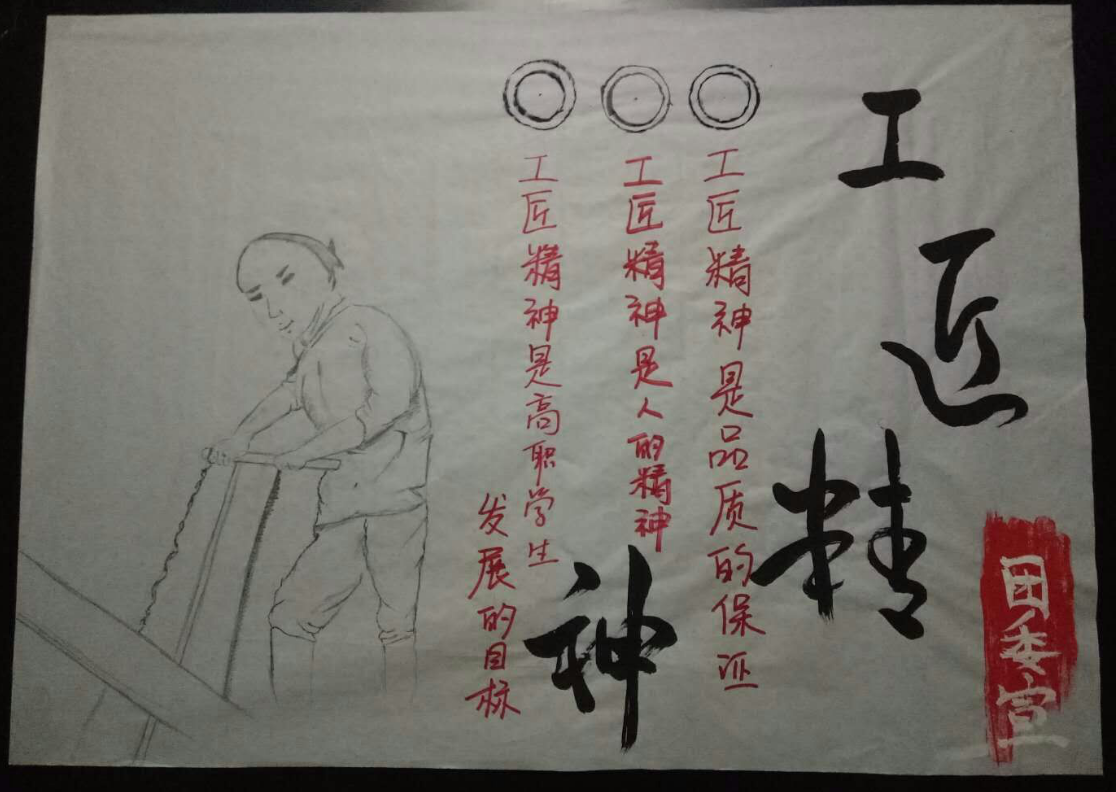 工匠精神
工匠精神是品质的保证
工匠精神是人的精神
工匠精神是高职学生
发展的目标
团委宣